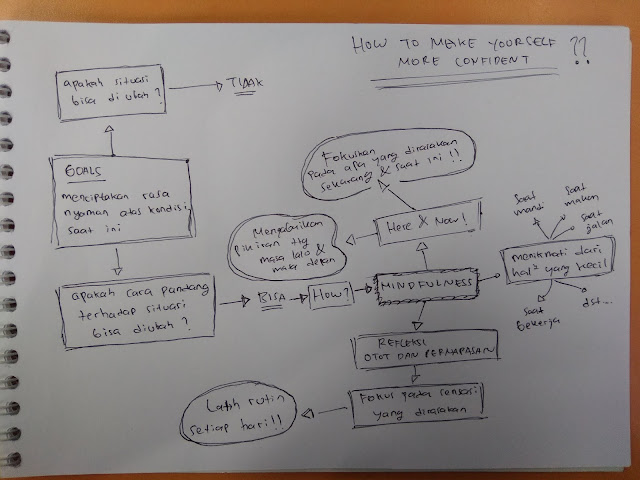 HOW TO MAKE YOURSELF
MORE CONFIDENT ??
apakah situasi
bisa diubah ?
TIDAK
GOALS
menciptakan rasa
nyaman atas kondisi
saat ini
apakah cara pandang
terhadap situasi
bisa diubah ?
BISA
How?
MINDFULNESS
Here & Now!
Fokuskan
pada apa yang dirasakan
sekarang & saat ini !!
Mengabaikan
pikiran ttg
masa lalu &
masa depan
menikmati dari
hal² yang kecil
saat
mandi
saat
makan
saat
jalan
saat
bekerja
dst...
REFLEKSI
OTOT DAN PERNAPASAN
Fokus pada sensasi
yang dirasakan
Latih rutin
setiap hari!!